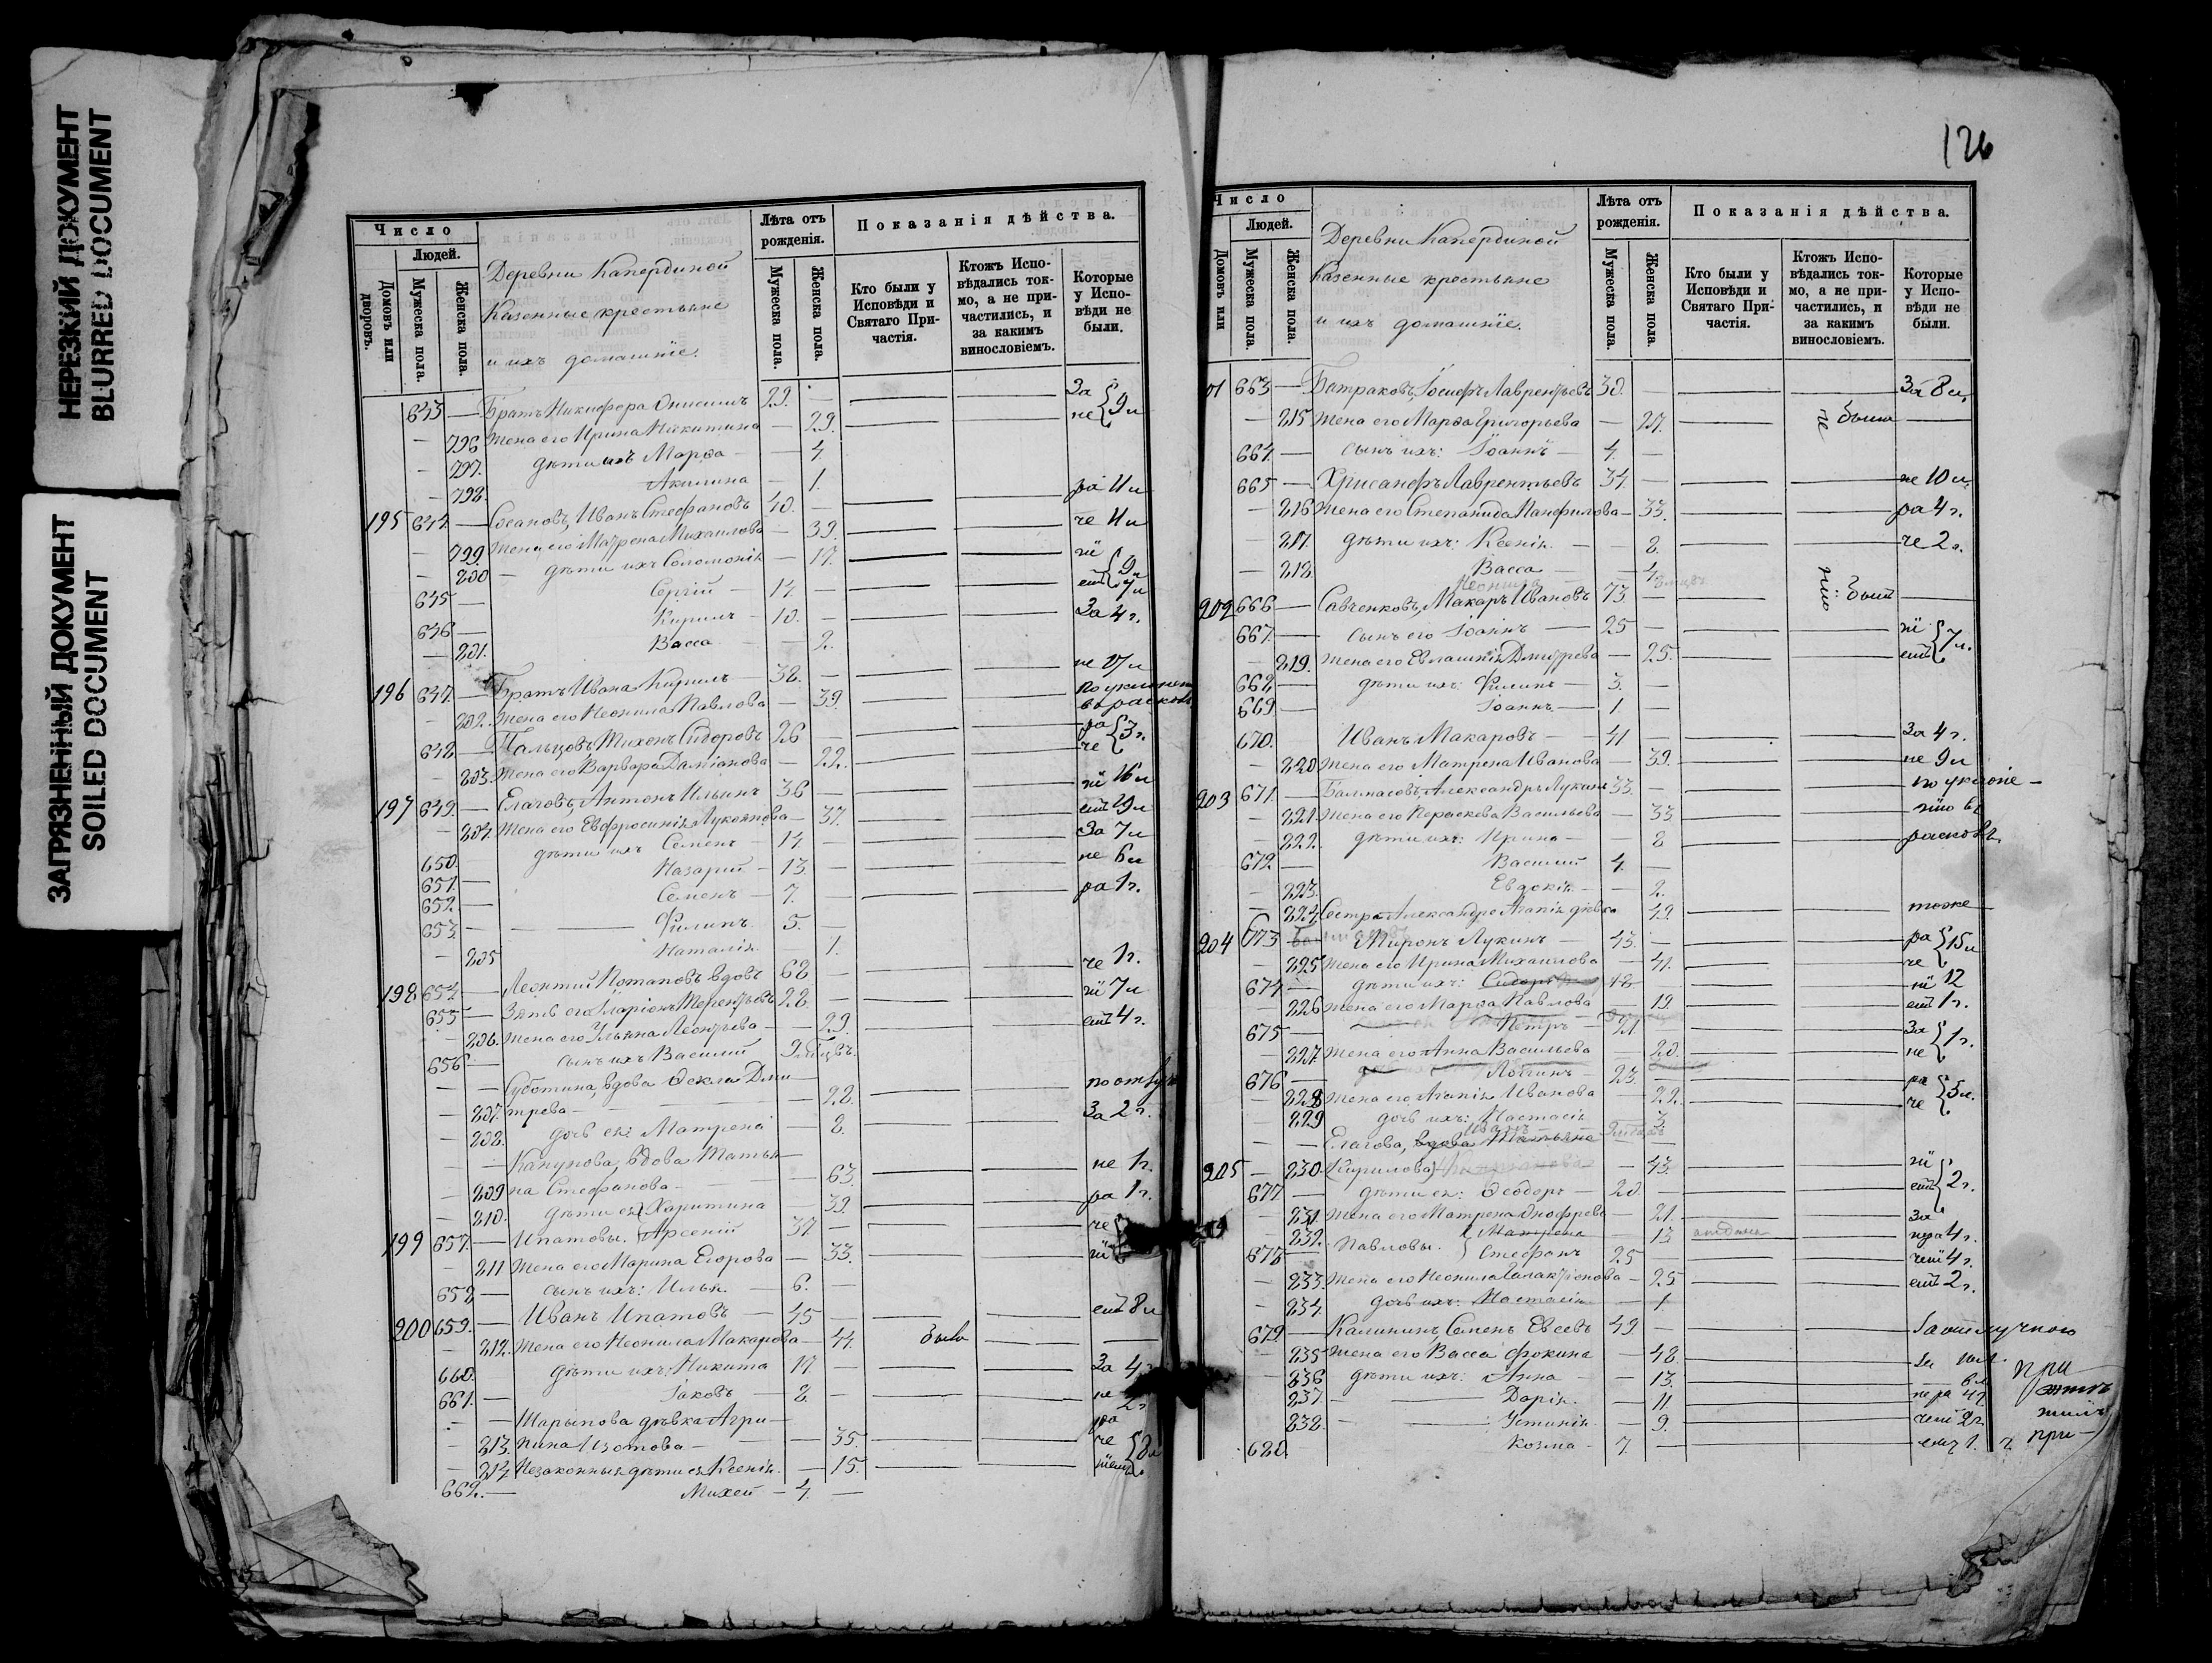 НЕРЕЗКИЙ ДОКУМЕНТ
BLURRED DOCUMENT
ЗАГРЯЗНЕННЫЙ ДОКУМЕНТ
SOILED DOCUMENT
Число
Людей.
Домовъ или дворовъ.
Мужеска пола.
Женска пола.
Деревни Капердиной
Казенные крестьяне
и ихъ домашніе.
Лѣта отъ рожденія.
Мужеска пола.
Женска пола.
Показанія дѣйства.
Кто были у Исповѣди и Святаго Причастія.
Ктожъ Исповѣдались токмо, а не причастились, и за какимъ винословіемъ.
Которые у Исповѣди не были.
643 — Братъ Никифора Онисимъ 29. — За
— 796 Жена его Ирина Никитина — 29. не 9 л
— 797. дѣти ихъ Марѳа — 4
— 798. Акилина — 1.
195 644 — Иванъ Стефановъ 40. — ра 11 л
— 799. Жена его Матрена Михаилова — 39. че 11 л
— 800 — дѣти ихъ Соломонія — 17.
645 — Сергій — 14 —
646 — Кирилъ — 10. — За 4 г.
— 201. Васса — 2.
196 647. — Братъ Ивана Кирилъ — 38. —
— 202. Жена его Неонила Павлова — 39.
648. — Пальцовъ, Тихонъ Сидоровъ 26 — ра
— 203. Жена его Варвара Даміанова — 22. че 3 г.
197 649. — Елаговъ, Антонъ Ильинъ 36 — 16 л
— 204. Жена его Евфросинія Лукоянова — 37.
650. дѣти ихъ Семенъ — 14 — За 7 л
651. — Назарій — 13. — не 6 л
652. — Семенъ — 7. — ра 1 г.
653. — Филипъ. 5. —
— 205 Наталія. — 1.
198 654. — Леонтій Потаповъ вдовъ 62 — че 1 г.
655 — Зять его Иларіонъ Терентьевъ 28. — 7 л
— 206. Жена его Ульяна Леонтьева — 29. 4 г.
656 — сынъ ихъ Василій
— — Суботина, вдова Ѳекла Дми
— 207. трева — 22.
— 208. дочь ея: Матрена — 2. За 2 г.
— — Капунова, вдова Татья-
— 209 на Стефанова — 63. не 1 г.
— 210. дѣти ея Харитина — 39. ра 1 г.
199 657. — Ипатовы. Арсеній 37 — че
— 211 Жена его Марина Егорова — 33.
658 — сынъ ихъ: Илья. — 6. —
200 659. — Иванъ Ипатовъ — 45 — 8 л
— 212. Жена его Неонила Макарова — 44. была
660. дѣти ихъ: Никита 17 — За 4 г
661. — Іаковъ — 8. — не 2 г
— — Шарыпова дѣвка Агри-
— 213. пина Изотова — 35. че
— 214 Незаконныя дѣти ея Ксенія. — 15.
662. — Михей — 4. —
126
Число
Людей.
Домовъ или
Мужеска пола.
Женска пола.
Деревни Капердиной
Казенные крестьяне
и ихъ домашніе.
Лѣта отъ рожденія.
Мужеска пола.
Женска пола.
Показанія дѣйства.
Кто были у Исповѣди и Святаго Причастія.
Ктожъ Исповѣдались токмо, а не причастились, и за какимъ винословіемъ.
Которые у Исповѣди не были.
01 663 — Батраковъ, Іосифъ Лаврентьевъ 30. — За 8 л.
— 215 Жена его Марѳа Григорьева — 27. была
664. — сынъ ихъ: Іоаннъ — 4. —
665 — Хрисанфъ Лаврентьевъ 34. — не 10 л.
— 216 Жена его Степанида Панфилова — 33. ра 4 г.
— 217. дѣти ихъ: Ксенія. — 8. че 2 г.
— 218. Васса — 4
202 666 — Савченковъ, Макаръ Ивановъ 73. —
667. — сынъ его Іоаннъ — 25 —
— 219. Жена его Евлампія Дмитрева — 25. 7 л.
668 — дѣти ихъ: Филипъ — 3. —
669. — Іоаннъ — 1. —
670. Иванъ Макаровъ — 41 — За 4 г.
— 220 Жена его Матрена Иванова — 39. не 9 л
203 671. — Александръ Лукинъ 33. —
— 221 Жена его Параскева Васильева — 33
— 222. дѣти ихъ: Ирина — 8
672 — Василій 4. —
— 223. Евдокія — 2.
— 224 Сестра Александра Агапія дѣвка 42. тоже
204 673 — Миронъ Лукинъ — 43. — ра
— 225 Жена его Ирина Михаилова — 41. че 15 л
674 — дѣти ихъ: Сидоръ 12
— 226 Жена его Марѳа Павлова — 19 1 г.
675 — Петръ — 21 За
— 227. Жена его Анна Васильева — 20. не 1 г.
676 — Логинъ — 23. — ра
— 228 Жена его Агапія Иванова — 22. че
— 229 дочь ихъ: Настасія — 3.
— — Елагова, вдова
205 — 230. Кирилова — 43.
677 — дѣти ея: Ѳеодоръ — 20. — 2 г.
— 231 Жена его Матрена Онофрева — 21. За
— 232. Павловы. Матрена — 13
678 — Стефанъ 25 4 г.
— 233. Жена его Неонила Галактіонова — 25 2 г.
— 234. дочь ихъ: Настасія — 1.
679. — Калининъ, Семенъ Евсеевъ 49. —
— 235 Жена его Васса Фокина — 48
— 236 дѣти ихъ: Анна — 13.
— 237. — Дарія. — 11
— 238. — Устинія. — 9.
680. Козма — 7. —